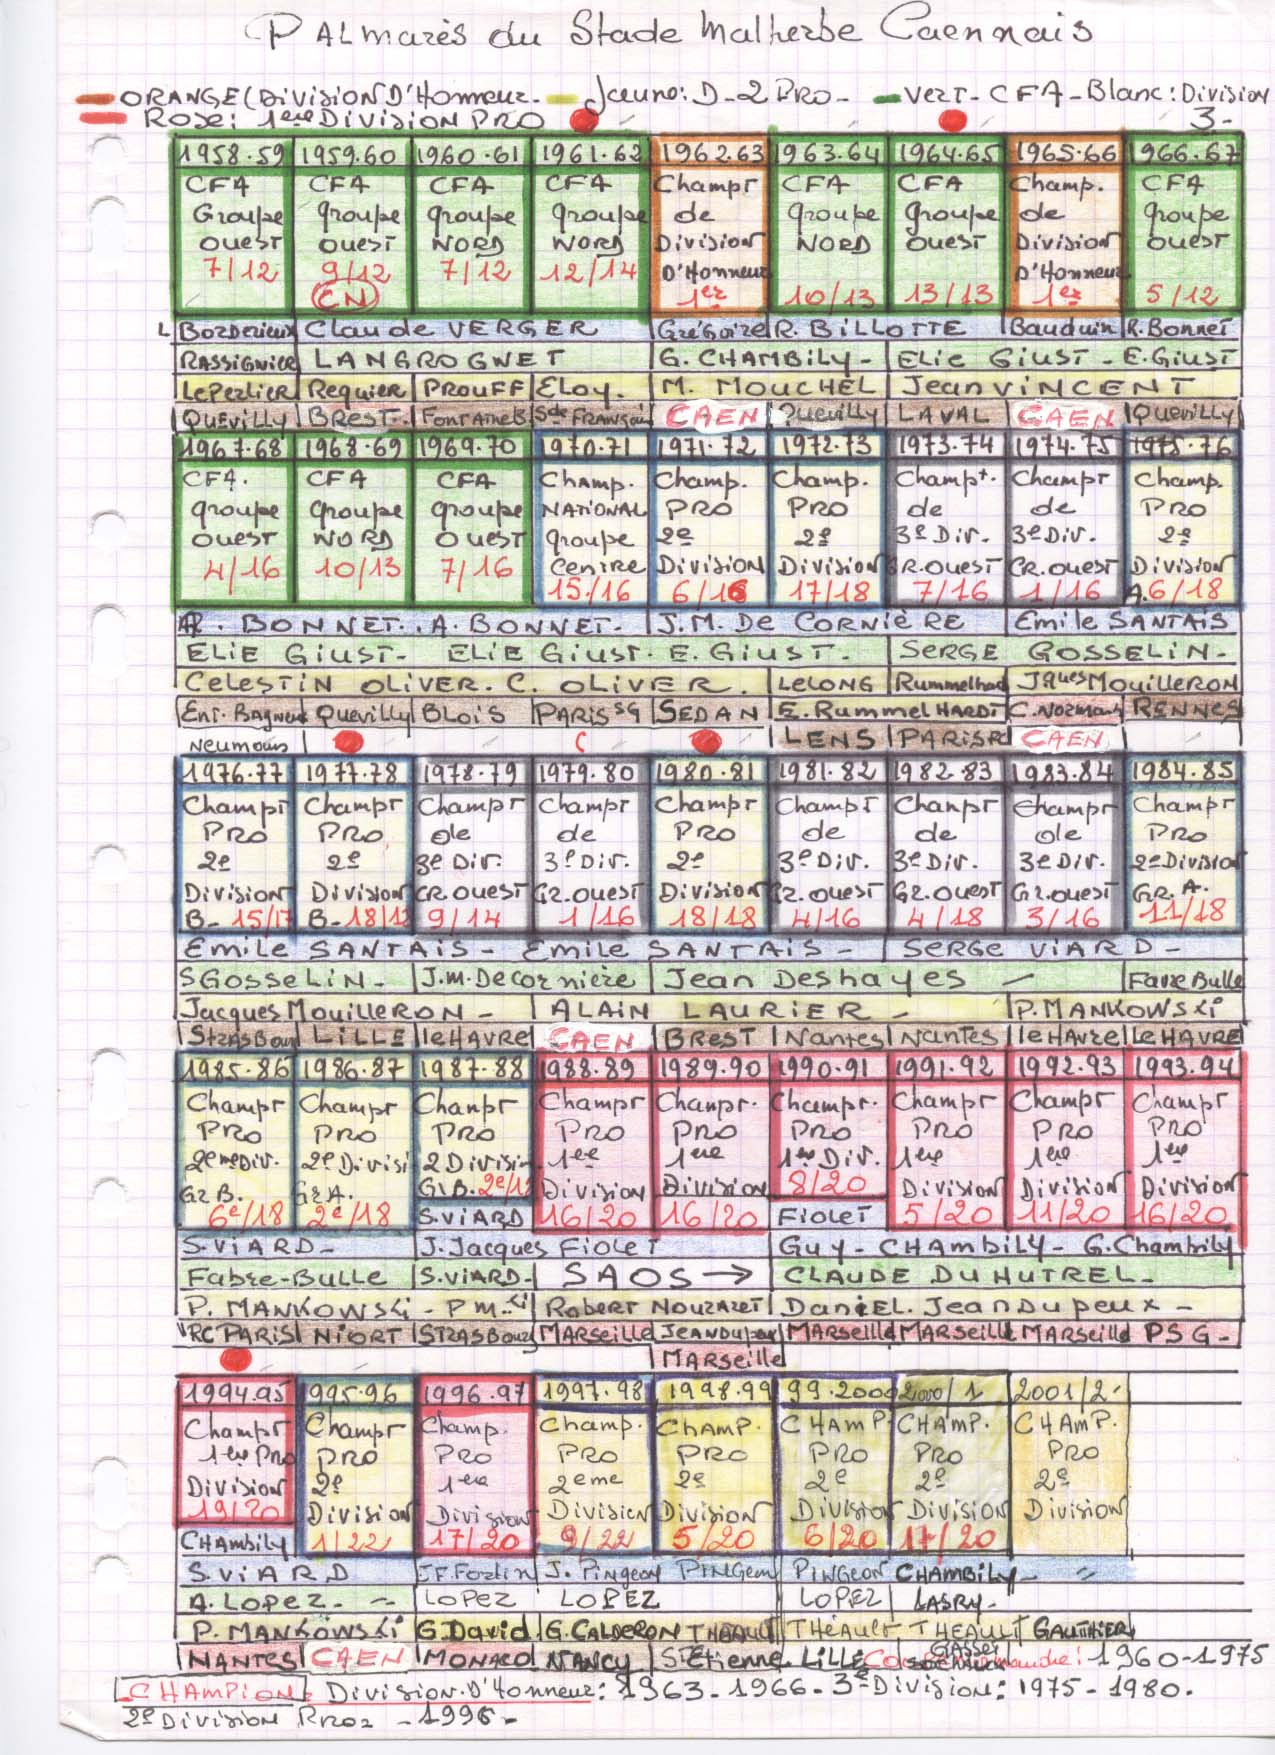 PALmarès du Stade Malherbe Caennais
ORANGE (Division D'Honneur - Jaune: D-2 PRO - Vert - CFA - Blanc: Division
Rose: 1ere Division PRO 3-
1958.59 1959.60 1960.61 1961.62 1962.63 1963.64 1964.65 1965.66 1966.67
CFA CFA CFA CFA Champt CFA CFA Champ. CFA
Groupe groupe groupe groupe de groupe groupe de groupe
Ouest Ouest NORD NORD Division NORD Ouest Division Ouest
7/12 9/12 7/12 12/14 D'Honneur 10/13 13/13 D'Honneur 5/12
CN 1er 1er
L Borderieux Claude VERGER Grégoire R. BILLOTTE Bauduin R. Bonnet
RASSIGNIER LANGROGNET G. CHAMBILY - ELIE GIUST - E. GIUST
LePerlier Requier PROUFF ELOY. M. MOUCHEL Jean VINCENT
QUEVILLY BREST. Fontaineb Sde FRANçais CAEN Quevilly LAVAL CAEN Quevilly
1967.68 1968.69 1969.70 1970.71 1971.72 1972.73 1973.74 1974.75 1975.76
CFA. CFA CFA Champ. Champ. Champ. Champt. Champt Champ.
groupe groupe groupe NATIONAL PRO PRO de de PRO
Ouest NORD Ouest groupe 2e 2e 3e Div. 3e Div. 2e
4/16 10/13 7/16 Centre Division Division GR.Ouest GR.Ouest Division
15/16 6/16 17/18 7/16 1/16 A. 6/18
R. BONNET. A. BONNET. J.M. De CORNIèRE Emile SANTAIS
ELIE GIUST - ELIE GIUST. E. GIUST. SERGE GOSSELIN -
CELESTIN OLIVER. C. OLIVER. LELONG Rummelhad Jques MOUILLERON
Ent. Bagneux Quevilly BLOIS PARIS SG SEDAN E. RummelHARDT C. Normans RENNES
Nemours LENS PARIS FC CAEN
1976.77 1977.78 1978.79 1979.80 1980.81 1981.82 1982.83 1983.84 1984.85
Champt Champt Champt Champt Champt Champt Champt Champt Champt
PRO PRO de de PRO de de de PRO
2e 2e 3e Div. 3e Div. 2e 3e Div. 3e Div. 3e Div. 2e Division
Division Division GR.Ouest Gr.Ouest Division Gr.Ouest Gr.Ouest Gr.Ouest GR. A.
B- 15/17 B- 18/18 9/14 1/16 18/18 4/16 4/18 3/16 11/18
Emile SANTAIS - Emile SANTAIS - SERGE VIARD -
S GOSSELIN - J.M. Decornière Jean Deshayes - Fabre Bulle
Jacques Mouilleron - ALAIN LAURIER - P. MANKOWSKI
Strasbou LILLE leHAVRE CAEN BREST Nantes Nantes leHavre Le HAVRE
1985.86 1986.87 1987.88 1988.89 1989.90 1990.91 1991.92 1992.93 1993.94
Champt Champt Champt Champt Champt. Champt. Champt Champt Champt
PRO PRO PRO PRO PRO PRO PRO PRO PRO
2eme Div. 2e Divisi 2 Divisi 1ere 1ere 1ere Div. 1ere 1ere 1ere
Gr B. Gr A. Gr B. 2e/18 Division Division 8/20 Division Division Division
6e/18 2e/18 S.VIARD 16/20 16/20 Fiolet 5/20 11/20 16/20
S. VIARD - J. Jacques Fiolet Guy - CHAMbily - G. Chambily
Fabre-Bulle S.VIARD - SAOS → CLAUDE DUHUTREL -
P. MANKOWSKI - P M..ki Robert NOUZARET DaniEL. Jeandupeux -
RC PARIS NIORT STRASBourg MARSEille JEANDUpeux MARSEille MARSEille MARSEille PSG -
MARSEille
1994.95 1995.96 1996.97 1997.98 1998.99 99.2000 2000/1 2001/2
Champt Champt Champ. Champ. CHAMP. CHAMP. CHAMP. CHAMP.
1ere Pro PRO PRO PRO PRO PRO PRO PRO
Division 2e 1ere 2eme 2e 2e 2e 2e
19/20 Division Division Division Division Division Division Division
CHAmbily 1/22 17/20 9/22 5/20 6/20 17/20
S. VIARD J.F. Fortin J. Pingeon PINGEon PINGEON CHAMBILY - "
A. LOPEZ - LOPEZ LOPEZ LOPEZ LASRY -
P. MANKOWSKI G. David G. CALDERON THéAULT THéAULT THEAULT GAUTHIER
NANTES CAEN MONACO NANCY St Etienne. LILLE Gasset 1960-1975
CHAMPION: Division. D'Honneur: 1963 - 1966 - 3e Division: 1975 - 1980.
2e Division PRO: - 1996 -